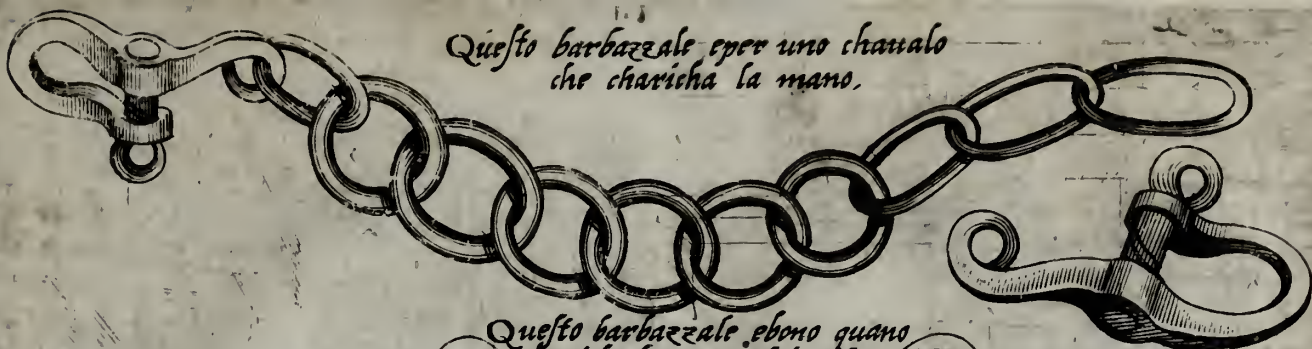 Questo barbazzale eper uno chaualo
che charicha la mano.
Questo barbazzale ebono quano